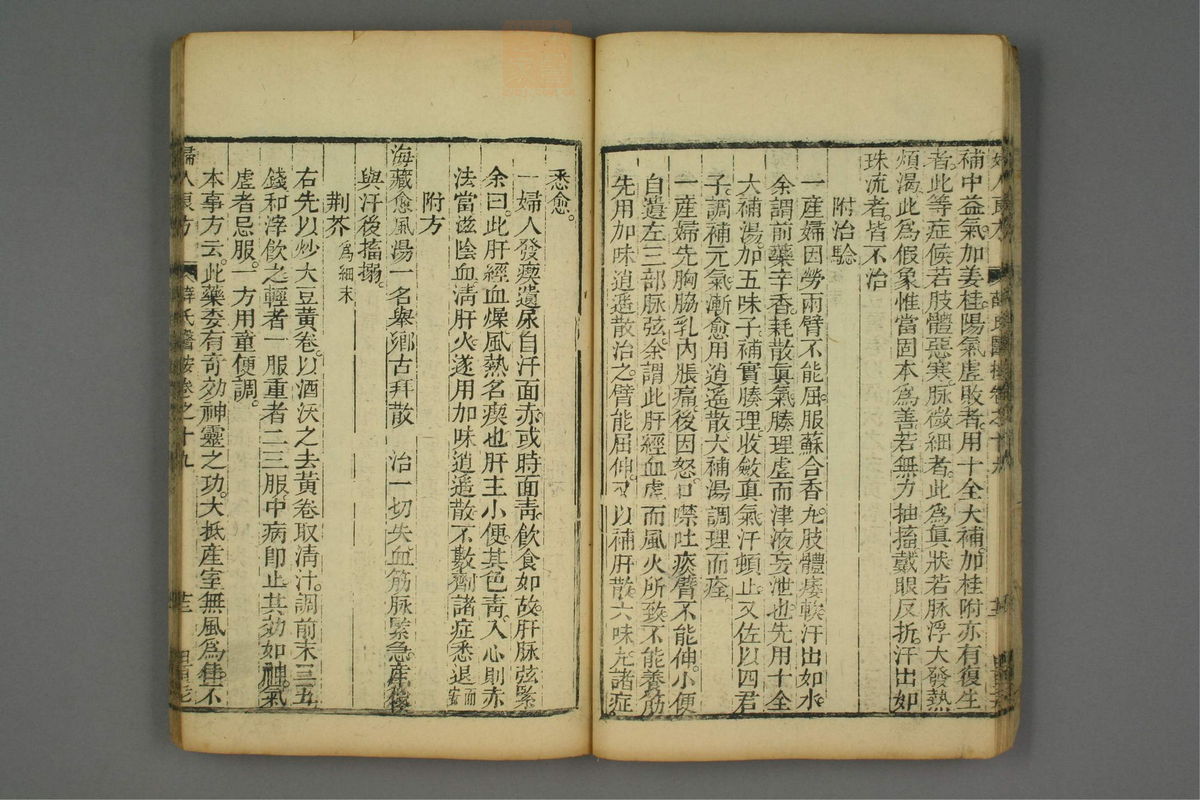 補中益氣加姜桂陽氣虛敗者用十全大補加桂附亦有復生
者此等症候若肢體惡寒脉微細者此為眞狀若脉浮大發熱
煩渴此爲假象惟當固本爲善若無力抽搐戴眼反折汗出如
珠流者皆不治
附治驗
一產婦因勞兩臂不能屈服蘇合香丸肢體痿軟汗出如水
余謂前藥辛香耗散眞氣腠理虛而津液妄泄也先用十全
大補湯加五味子補實腠理收斂眞氣汗頓止又佐以四君
子調補元氣漸愈用逍遙散大補湯調理而痊
一產婦先胸脇乳內脹痛後因怒口噤吐痰臂不能伸小便
自遺左三部脉弦余謂此肝經血虛而風火所致不能養筋
先用加味逍遙散治之臂能屈伸又以補肝散六味丸諸症
悉愈。
一婦人發瘈遺尿自汗面赤或時面靑飲食如故肝脉弦緊
余曰此肝經血燥風熱名瘈也肝主小便其色靑入心則赤
法當滋陰血淸肝火遂用加味逍遙散不數劑諸症悉退而安
附方
海藏愈風湯一名舉鄉古拜散 治一切失血筋脉緊急產後
與汗後搐搦。
荆芥爲細末
右先以炒大豆黄卷以酒沃之去黄卷取淸汁調前末三五
錢和滓飲之輕者一服重者二三服中病卽止其効如神氣
虛者忌服一方用童便調。
本事方云此藥委有奇効神靈之功大抵產室無風爲佳不
婦人良方 薛氏醫按卷之十九